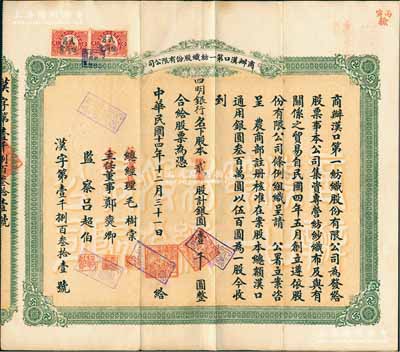 商辦漢口第一紡織股份有限公司
商辦漢口第一紡織股份有限公司為發給
股票事本公司集資專營紡紗織布及與有
關係之貿易自民國四年五月創立遵依股
份有限公司條例組織呈請 公署立案咨
呈 農商部註冊核准在案股本總額漢口
通用銀圓叁百萬圓以伍百圓為一股今收
到
四明銀行名下股本貳股計銀圓壹千圓整
合給股票為憑
中華民國十四年十二月三十一日 給
總經理毛樹棠
主任董事鄭燮卿
監察呂超伯
漢字第壹千捌百叁拾壹號